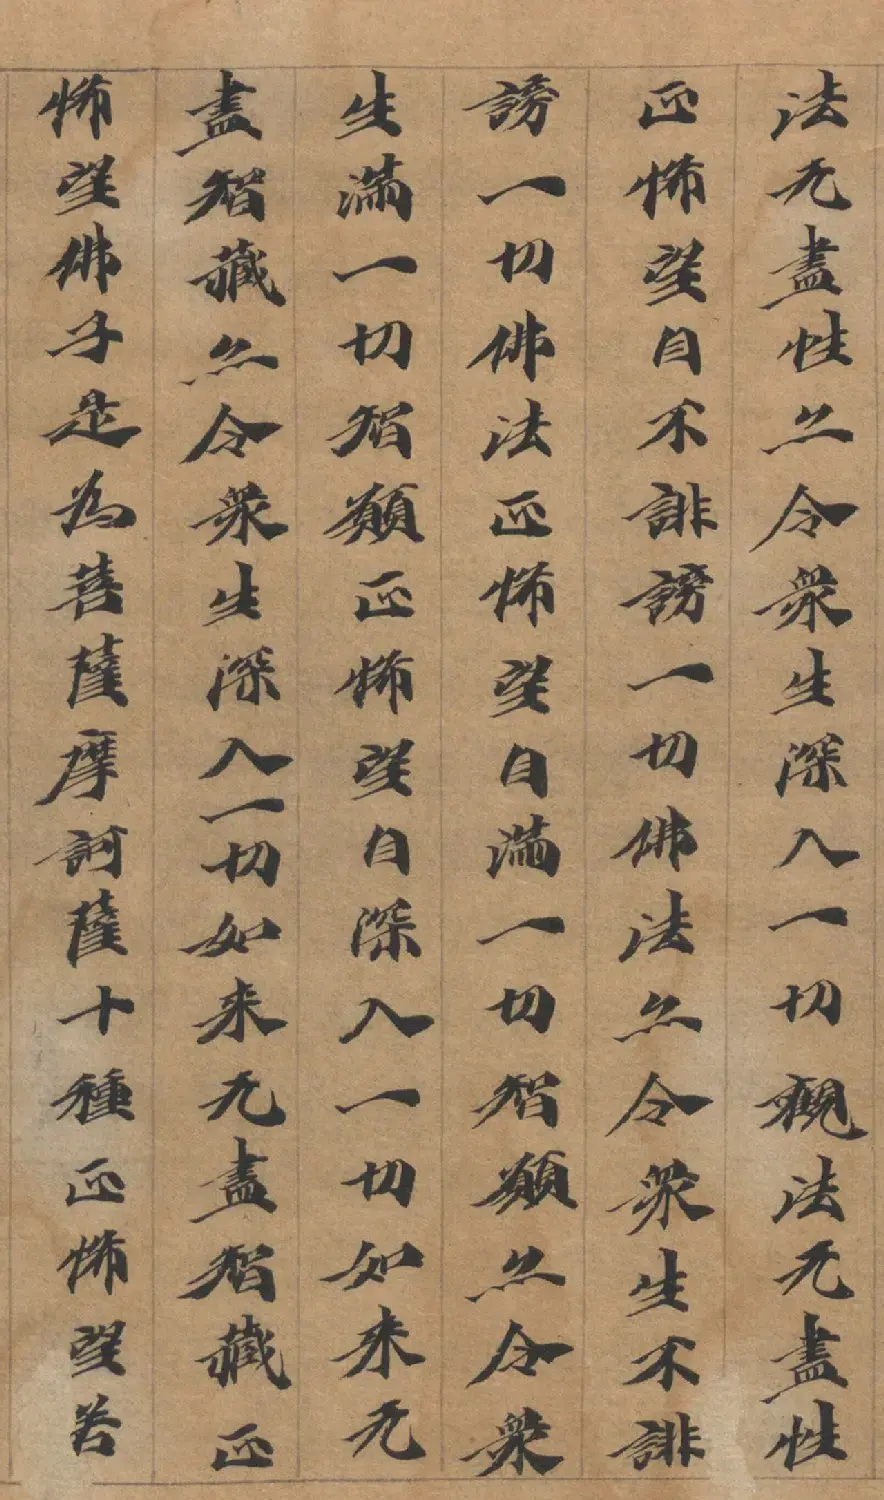 法无盡性亦令衆生深入一切觀法无盡性
正悕望自不誹謗一切佛法亦令衆生不誹
謗一切佛法正悕望自滿一切智願亦令衆
生滿一切智願正悕望自深入一切如来无
盡智藏亦令衆生深入一切如来无盡智藏正
悕望佛子是為菩薩摩訶薩十種正悕望若